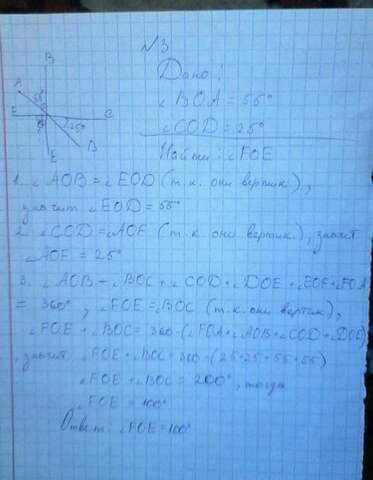 №3
Дано:
∠BOA = 55°
∠COD = 25°
Найти: ∠FOE
B
A
55°
E
C
25°
B
E
1. ∠AOB = ∠EOD (т.к. они вертик.),
значит ∠EOD = 55°
2. ∠COD = ∠AOF (т.к. они вертик.), значит
∠AOE = 25°
3. ∠AOB + ∠BOC + ∠COD + ∠DOE + ∠EOF + ∠FOA
= 360°, ∠FOE = ∠BOC (т.к. они вертик),
∠FOE + ∠BOC = 360 - (∠FOA + ∠AOB + ∠COD + ∠DOE)
, значит ∠FOE + ∠BOC = 360 - (25+25+55+55)
∠FOE + ∠BOC = 200°, тогда
∠FOE = 100°
Ответ: ∠FOE = 100°